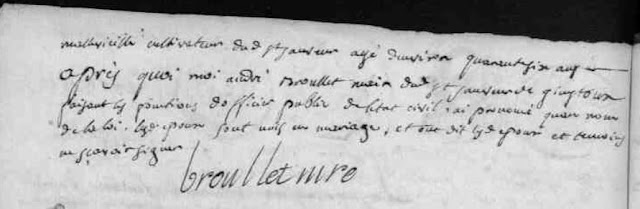 cultivateur dud st sauveur agé d'environ quarente six ans
après quoi moi andré Broullet maire dud st sauveur de gingtoux
faisant les fonctions d'officier public de l'état civil, ai prononcé quau nom
de la loi, lesd epoux sont unis en mariage, et ont dit lesd epoux et temoins
ne sçavoir signer
broullet mre